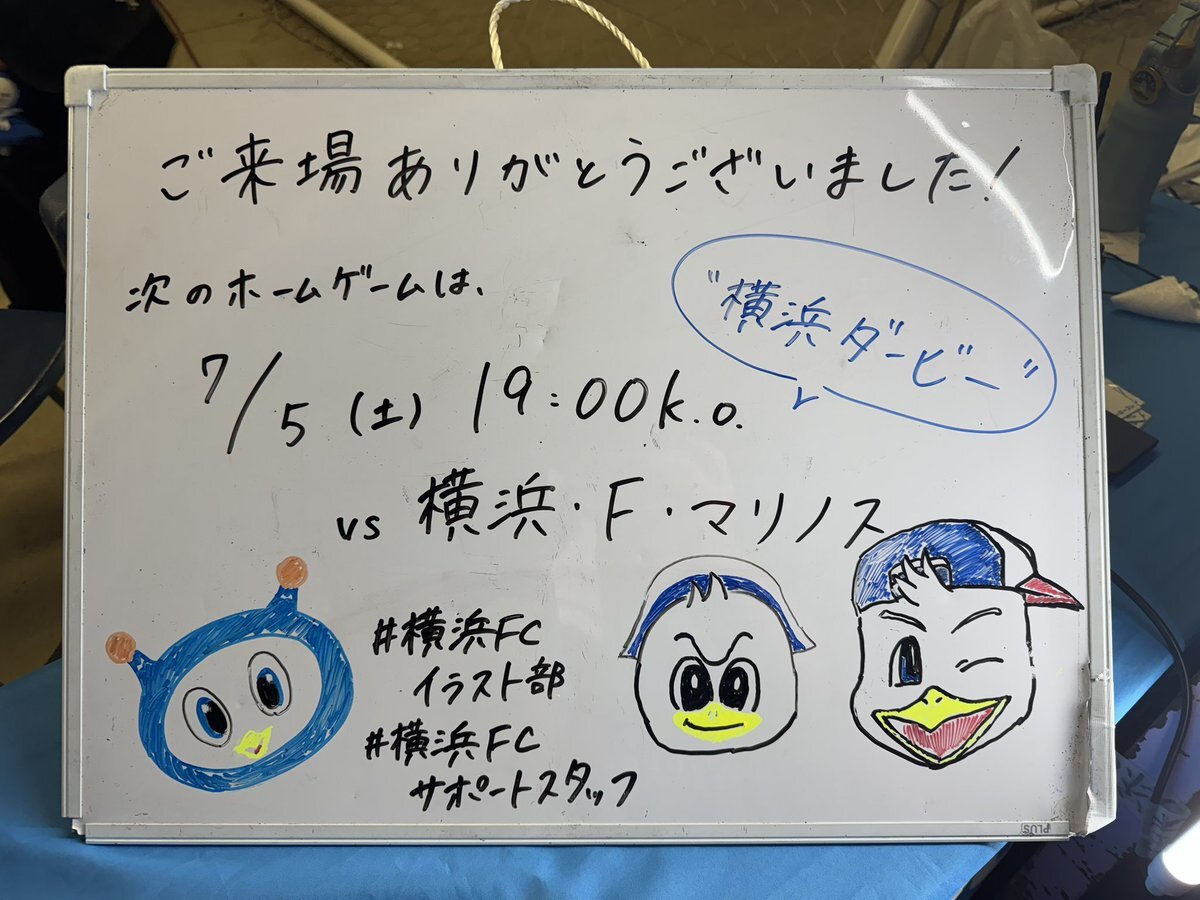 ご来場ありがとうございました!
次のホームゲームは、
"横浜ダービー"
7/5 (土) 19:00 K.O.
vs 横浜・F・マリノス
#横浜FC
イラスト部
#横浜FC
サポートスタッフ
PLUS